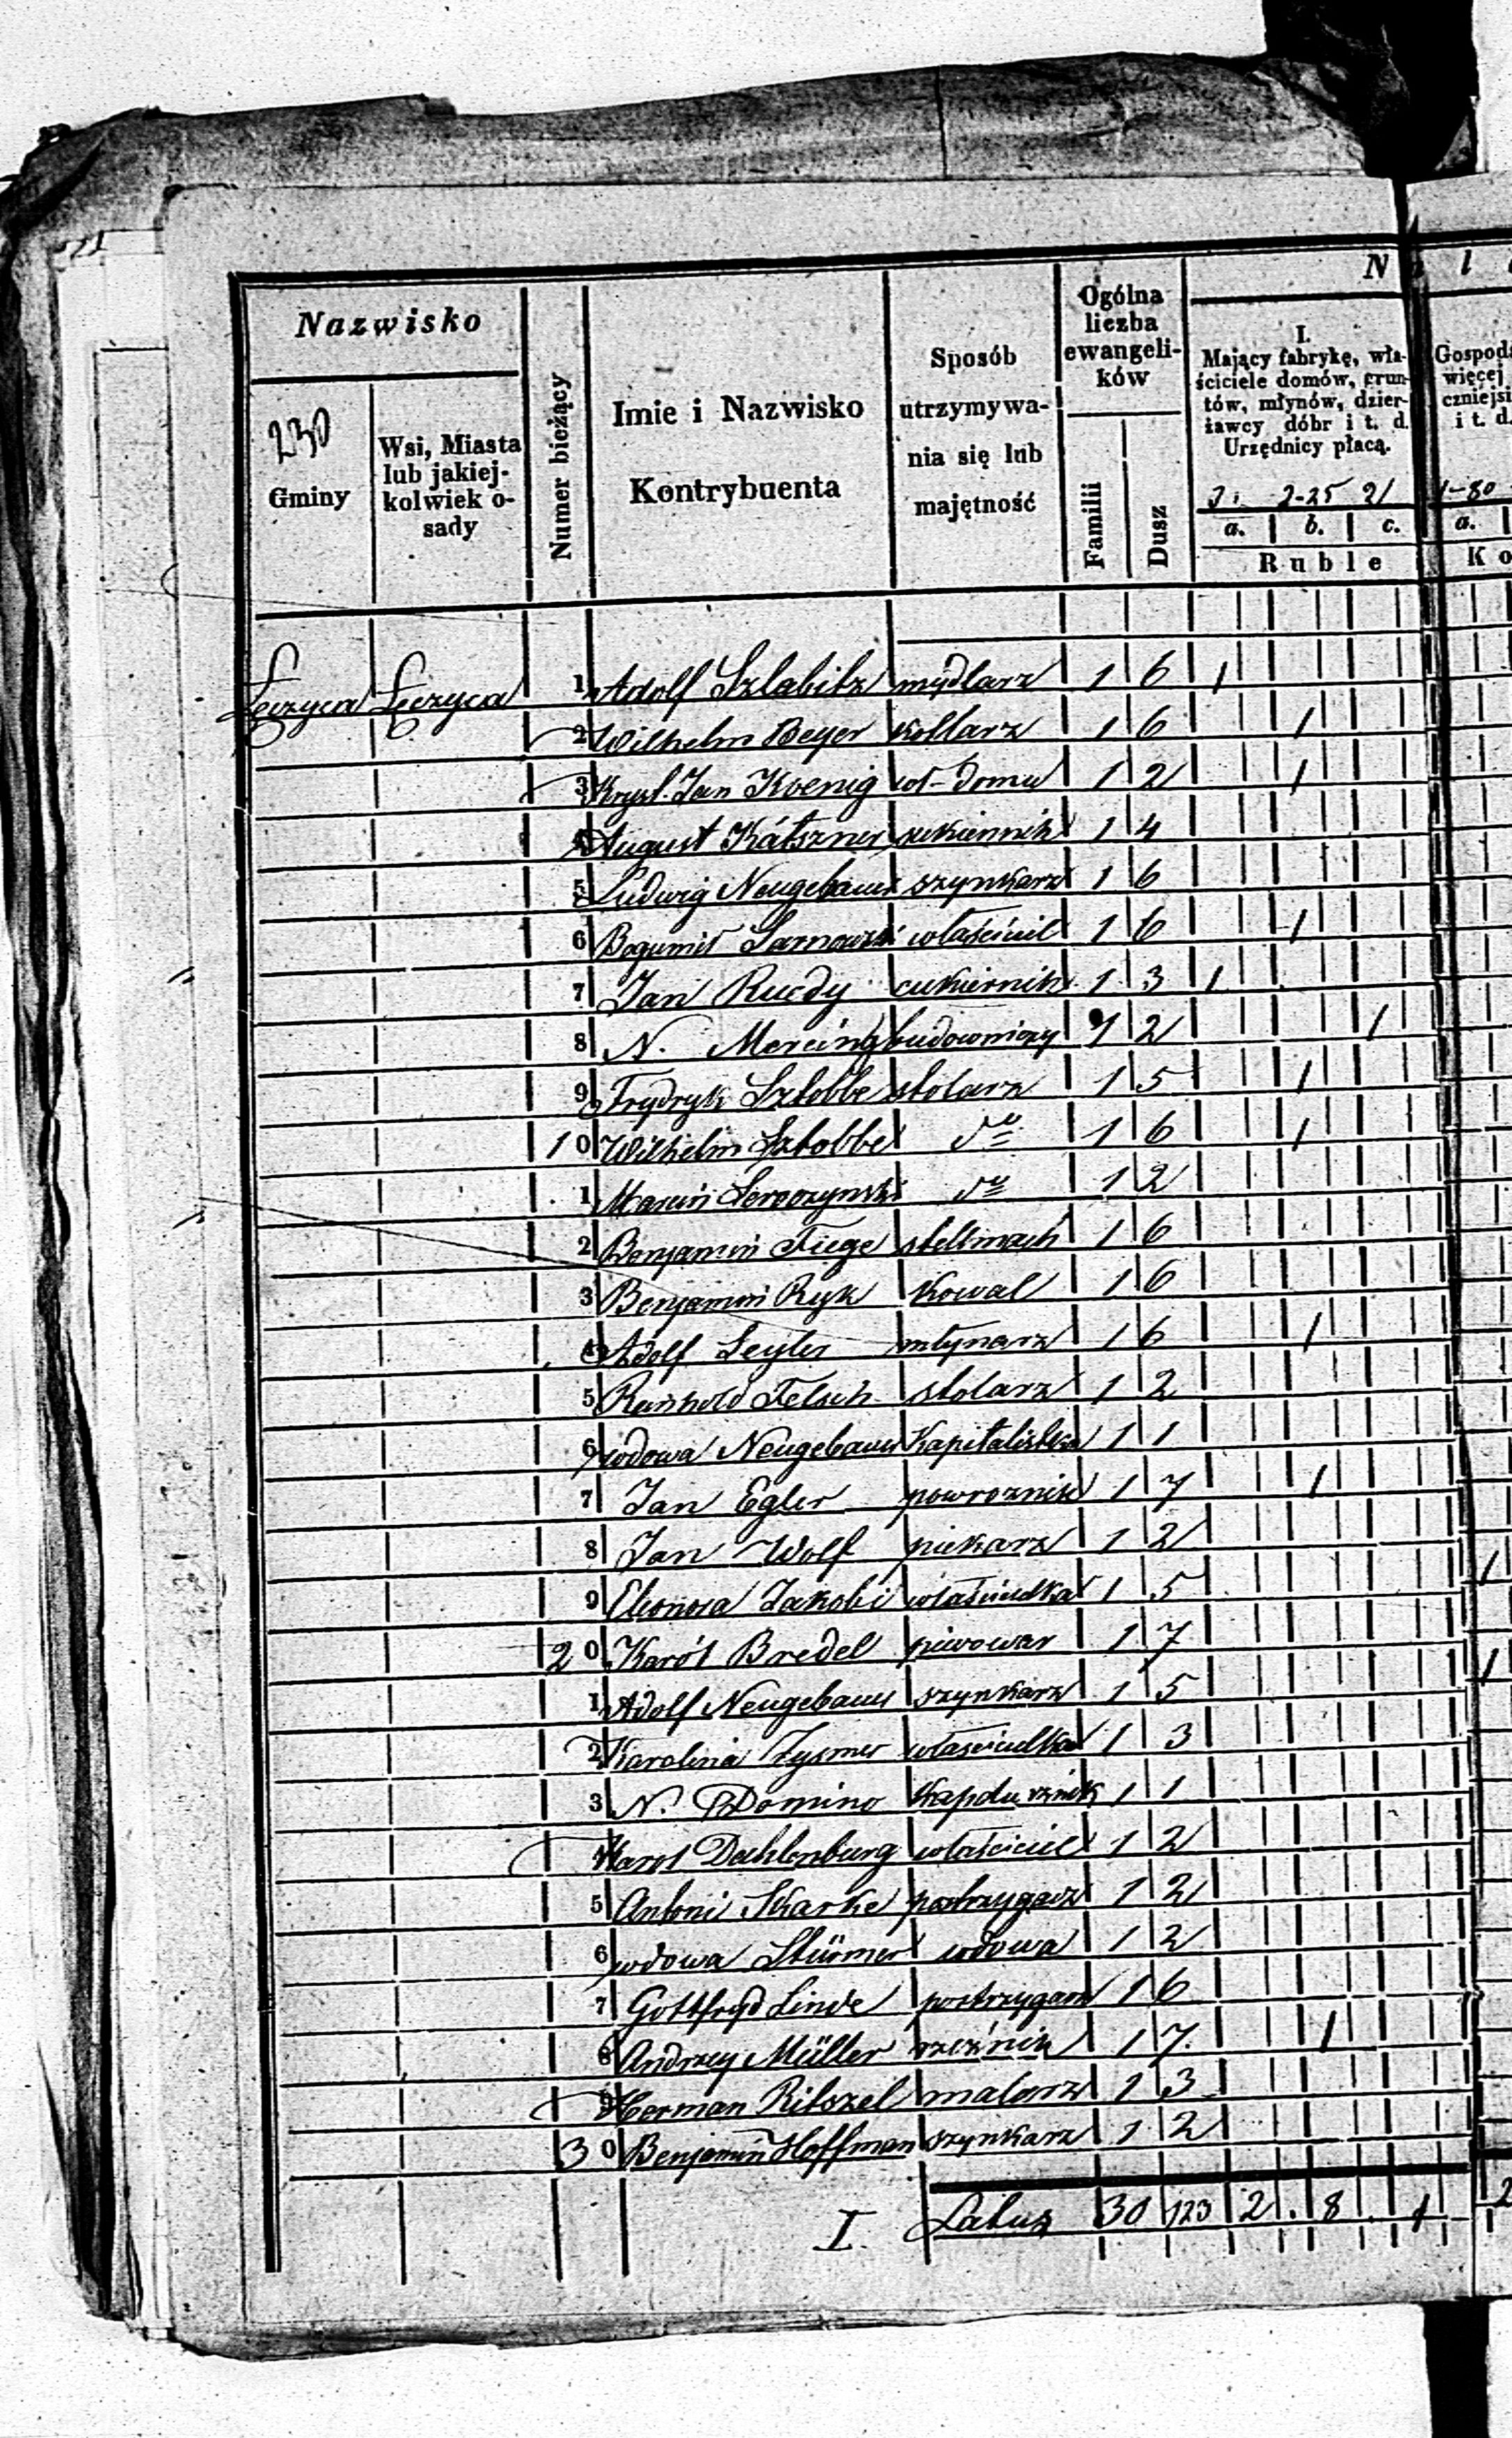 Nazwisko
230
Gminy
Wsi, Miasta
lub jakiej-
kolwiek o-
sady
Numer bieżący
Imie i Nazwisko
Kontrybuenta
Sposób
utrzymywa-
nia się lub
majętność
Ogólna
liczba
ewangeli-
ków
Familii
Dusz
N a l
I.
Mający fabrykę, wła-
ściciele domów, grun-
tów, młynów, dzier-
żawcy dóbr i t. d.
Urzędnicy płacą.
3. 2-25 21
a. b. c.
Ruble
Gospod
więcej
czniejsi
i t. d.
1-80
a.
Ko
Łęczyca Łęczyca 1 Adolf Szlabitz mydlarz 1 6 1
2 Wilhelm Beyer kotlarz 1 6 1
3 Kryst. Jan Koenig wł-domu 1 2 1
4 August Kátszner sukiennik 1 4
5 Ludwig Neugebauer szynkarz 1 6
6 Bogumił Sarnowski właściciel 1 6 1
7 Jan Ruedy cukiernik 1 3 1
8 N. Mercing budowniczy 1 2 1
9 Frydryk Sztobbe stolarz 1 5 1
10 Wilhelm Sztobbe do 1 6 1
1 Marcin do 1 2
2 Benjamin Fiege stellmach 1 6
3 Benjamin Ryk Kowal 1 6
4 Adolf Seyler młynarz 1 6 1
5 Reinhold Felsch stolarz 1 2
6 wdowa Neugebauer Kapitalistka 1 1
7 Jan Egler powroznik 1 7 1
8 Jan Wolf piekarz 1 2
9 Eleonora Jakobi właścicielka 1 5 1
20 Karól Bredel piwowar 1 7
1 Adolf Neugebauer szynkarz 1 5 1
2 Karolina Zysmer właścicielka 1 3
3 N. Domino 1 1
4 Karol Dahlenburg właściciel 1 2
5 Antoni Skarke postrzygacz 1 2
6 wdowa Stürmer wdowa 1 2
7 Gottfryd Linde postrzygacz 1 6
8 Andrzey Müller rzeźnik 1 7 1
9 Herman Ritszel malarz 1 3
30 Benjamin Hoffman szynkarz 1 2
I. Latus 30 123 2 8 1 2